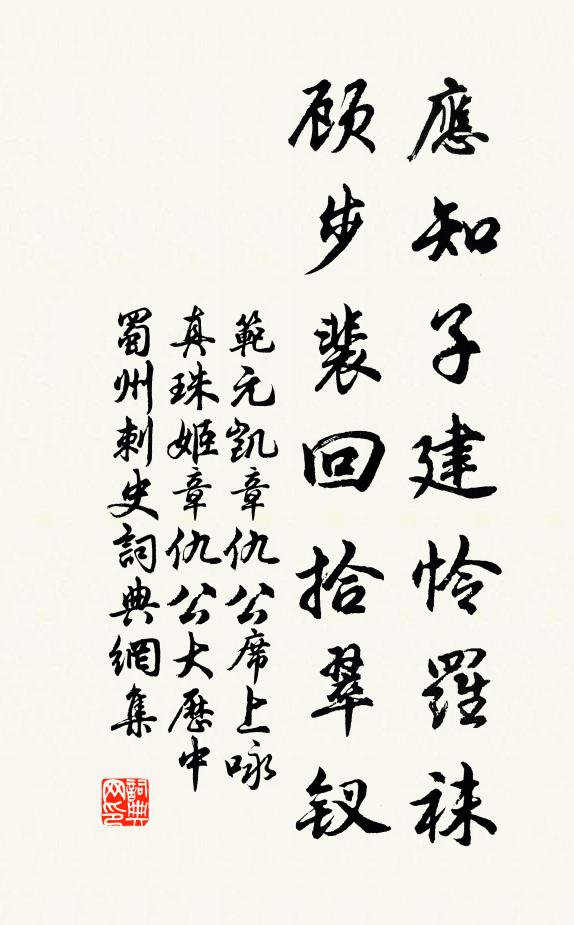 應知子建怜羅袜
顾步裴回拾翠钗
範元凱章仇公席上咏
真珠姬章仇公大歷中
蜀州刺史詞典網集
詞典网印